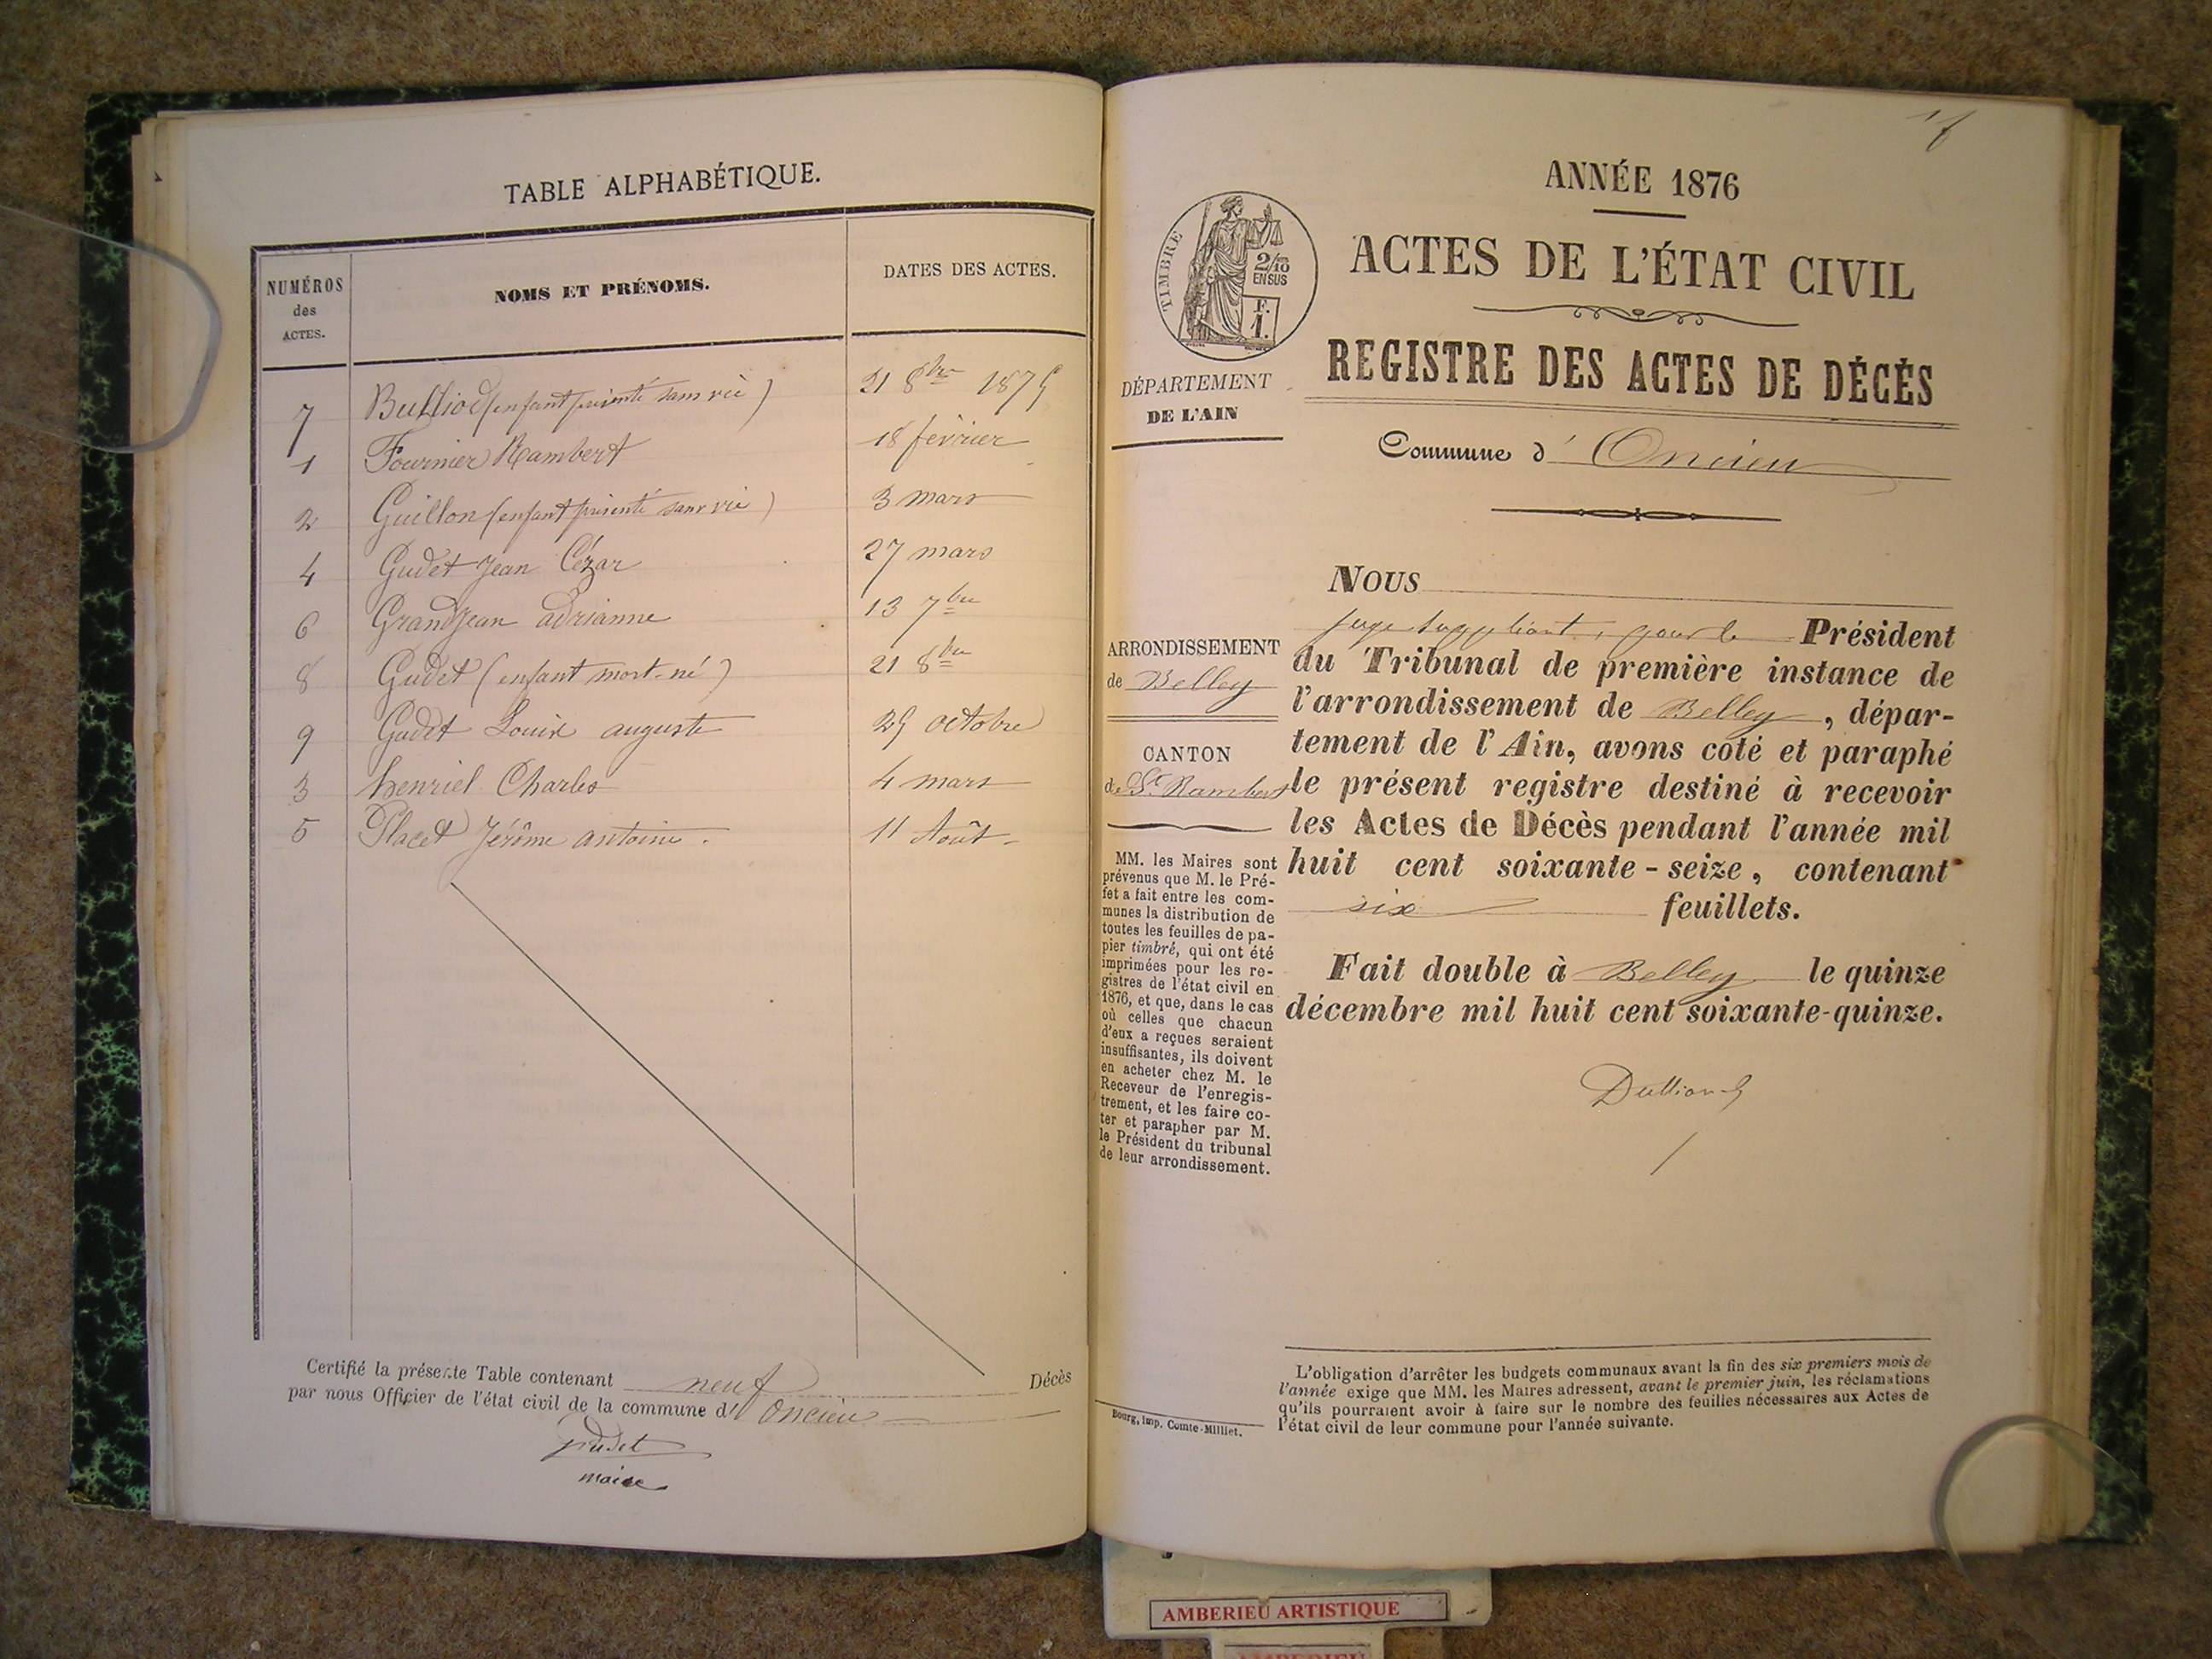 TABLE ALPHABÉTIQUE.
NUMÉROS des ACTES.
NOMS ET PRÉNOMS.
DATES DES ACTES.
7 Bulliod (enfant présenté sans vie) 21 8bre 1875
1 Fournier Rambert 18 février
2 Guillon (enfant présenté sans vie) 3 mars
4 Gudet Jean Cézar 27 mars
6 Grandjean adrianne 13 7bre
8 Gudet (enfant mort-né) 21 8bre
9 Gudet Louis auguste 29 octobre
3 henriel Charles 4 mars
5 Placet Jérôme antoine. 11 Août
Certifié la présente Table contenant neuf Décès
par nous Officier de l'état civil de la commune d' oncieu
gudet
maire
ANNÉE 1876
TIMBRE
2/10
EN SUS
F.
1.
ACTES DE L'ÉTAT CIVIL
REGISTRE DES ACTES DE DÉCÈS
DÉPARTEMENT
DE L'AIN
Commune d' Oncieu
ARRONDISSEMENT
de Belley
CANTON
de St Rambert
MM. les Maires sont
prévenus que M. le Pré-
fet a fait entre les com-
munes la distribution de
toutes les feuilles de pa-
pier timbré, qui ont été
imprimées pour les re-
gistres de l'état civil en
1876, et que, dans le cas
où celles que chacun
d'eux a reçues seraient
insuffisantes, ils doivent
en acheter chez M. le
Receveur de l'enregis-
trement, et les faire co-
ter et parapher par M.
le Président du tribunal
de leur arrondissement.
Nous
juge suppléant, pour le Président
du Tribunal de première instance de
l'arrondissement de Belley, dépar-
tement de l'Ain, avons coté et paraphé
le présent registre destiné à recevoir
les Actes de Décès pendant l'année mil
huit cent soixante-seize, contenant
six feuillets.
Fait double à Belley le quinze
décembre mil huit cent soixante-quinze.
L'obligation d'arrêter les budgets communaux avant la fin des six premiers mois de
l'année exige que MM. les Maires adressent, avant le premier juin, les réclamations
qu'ils pourraient avoir à faire sur le nombre des feuilles nécessaires aux Actes de
l'état civil de leur commune pour l'année suivante.
Bourg, imp. Comte-Milliet.
AMBERIEU ARTISTIQUE
AMBERIEU